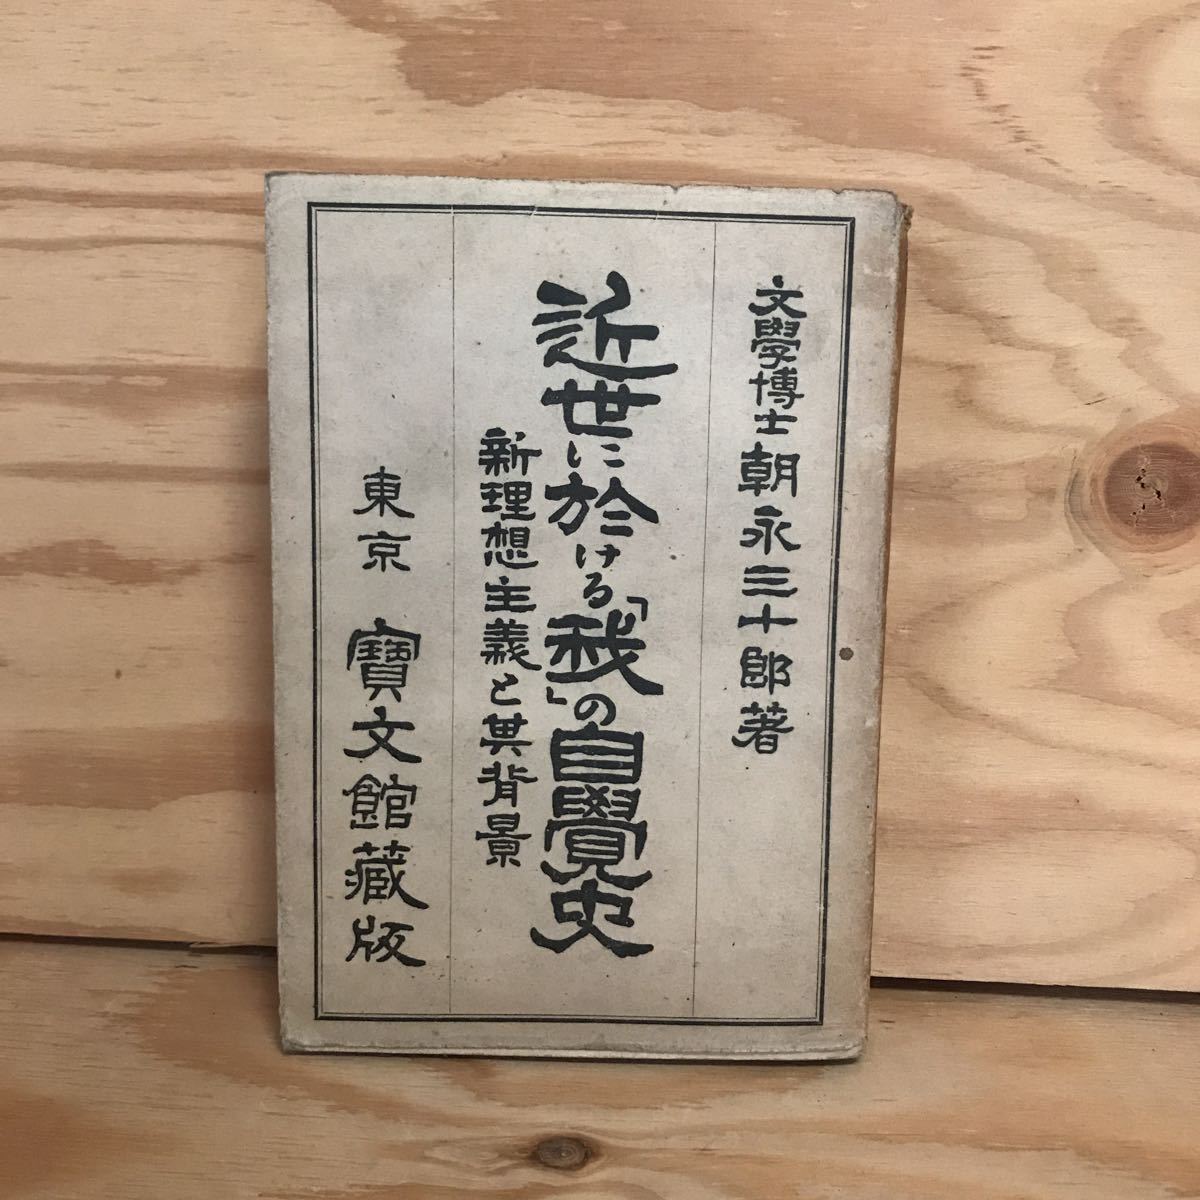 文學博士 朝永三十郎著
近世に於ける「我」の自覺史
新理想主義と其背景
東京 寶文館藏版